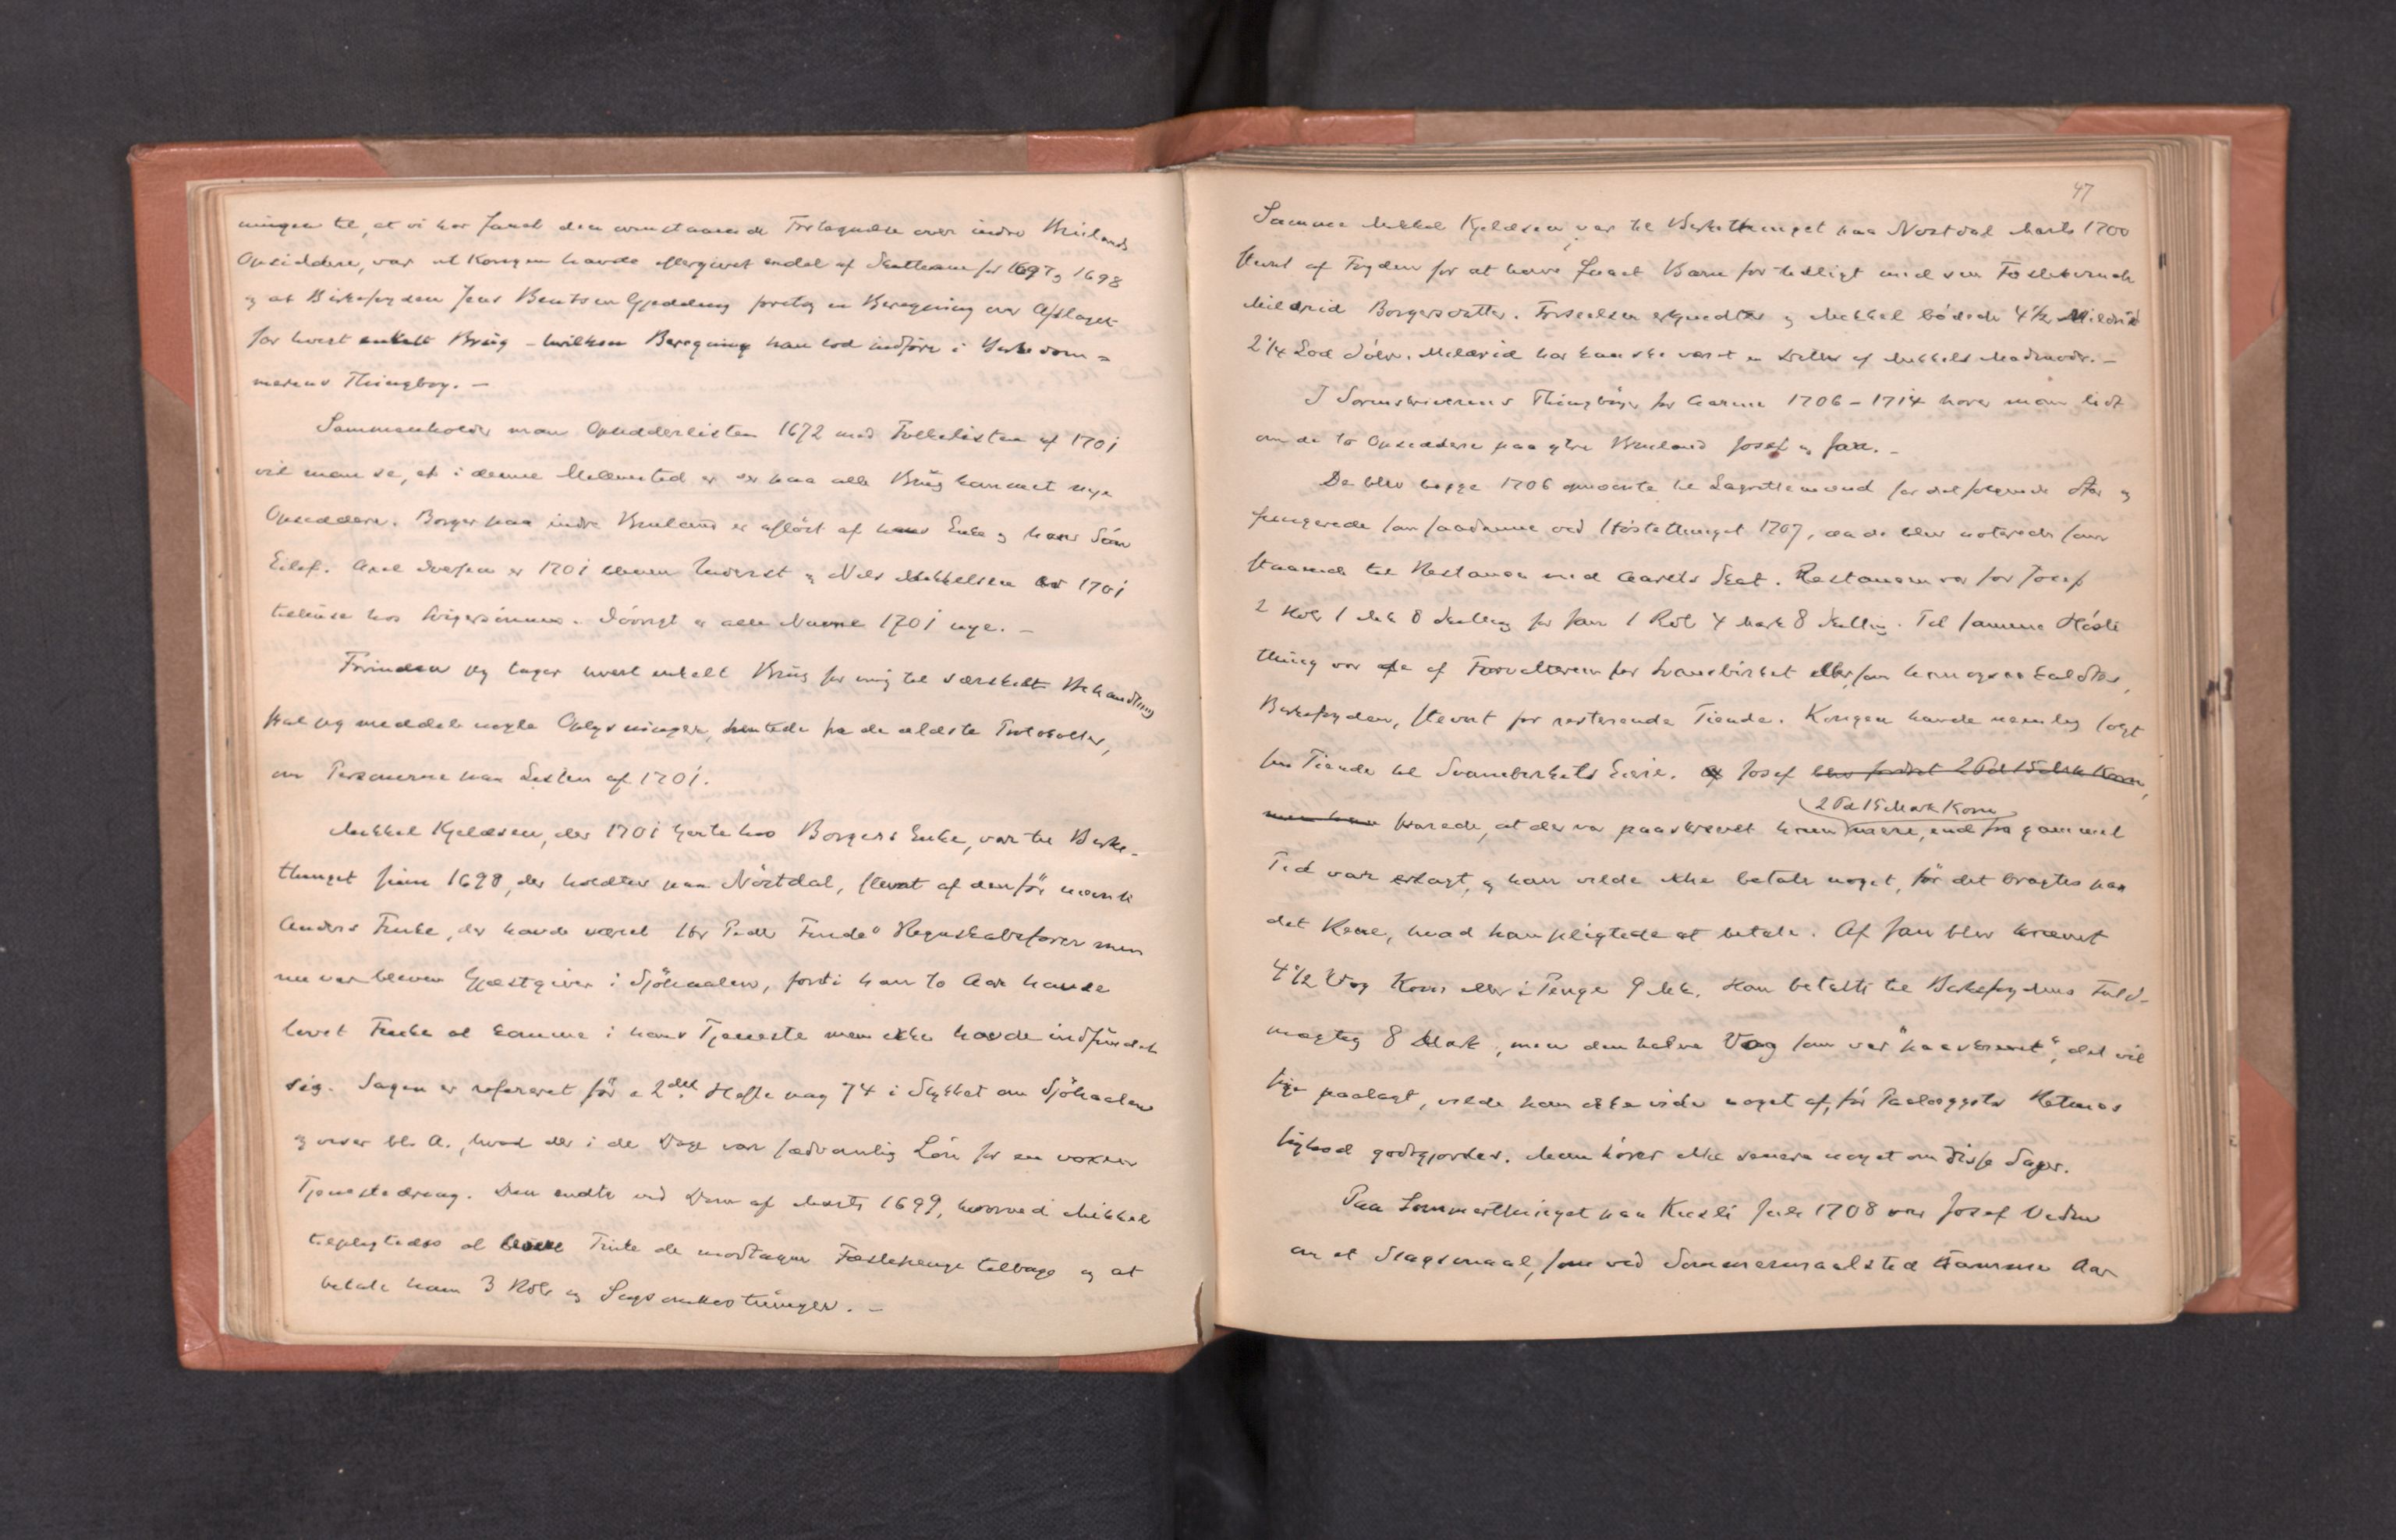 ningen til, at vi har faaet den ovenstaaende Fortegnelse over indre Bruland
Opsiddere, var at Kongen havde eftergivet endel af Skatterne for 1697 og 1698
og at Birkefogden Jens Bentsen Gjedding foretog en Beregning over Afslaget
for hvert enkelt Brug - hvilken Beregning han lod indføre i Birkedom=
merens Thingbog. -
Sammenholder man Opsidderlisten 1672 med Folkelisten af 1701
vil man se, at i denne Mellemtid er der paa alle Brug kommet nye
Opsiddere. Borger paa indre Bruland er afløst af hans Enke og hans Søn
Eilef. Axel Iversen er 1701 bleven Inderst og Nils Mikkelsen er 1701
tilhuse hos Svigersønnen. Iøvrigt er alle Navne 1701 nye. -
Forinden jeg tager hvert enkelt Brug for mig til særskilt Behandling
skal jeg meddele nogle Oplysninger, hentede fra de ældste Protokoller,
om Personerne paa Listen af 1701.
Mikkel Kjeldsen, der 1701 tjente hos Borgers Enke, var til Birke-
thinget Juni 1698, der holdtes paa Nørtdal, stevnt af den før nævnte
Anders Finke, der havde været Hr Peder Finde's Regnskabsfører men
nu var bleven Gjæstgiver i Sjøholen, fordi han to Aar havde
lovet Finke at komme i hans Tjeneste men ikke havde indfundet
sig. Sagen er refereret før i 2det Hefte pag 74 i Stykket om Sjøholen
og viser bl. A., hvad der i de Dage var sædvanlig Løn for en voxen
Tjenestedreng. Den endte ved Dom af Marts 1699, hvorved Mikkel
tilpligtedes at levere Finke de modtagne Fæstepenge tilbage og at
betale ham 3 Rdr og Sagsomkostninger. -
47
Samme Mikkel Kjeldsen var til Birkethinget paa Nørtdal Marts 1700
stevnt af Fogden for at have faaet Barn for tidligt med sin Fæstekvinde
Mildrid Borgersdatter. Forseelsen erkjendtes og Mikkel bødede 4½ Mildrid
2¼ Lod Sølv. Mildrid har kanske været en Datter af Mikkels Madmoder. -
I Sorenskriverens Thingbøger for Aarene 1706 - 1714 hører man lidt
om de to Opsiddere paa ytre Bruland Josef og Jan. -
De blev begge 1706 opnævnte til Lagrettemænd for det følgende Aar og
fungerede som saadanne ved Høstethinget 1707, da de blev noterede som
staaende til Restance med Aarets Skat. Restancen var for Josef
2 Rdr 1 Mk 8 Skilling for Jan 1 Rdr 4 Mark 8 Skilling. Til samme Høste
thing var de af Forvalteren for Svaneborket eller, som han ogsaa kaldtes,
Birkefogden, stevnt for resterende Tiende. Kongen havde nemlig solgt
sin Tiende til Svanebirkets Eiere. Josef blev fordret 2 Pd 15 Mrk Korn,
men han svarede, at der var paaskrevet ham (2 Pd 15 Mark Korn) mere, end fra gammel
Tid var erlagt, og han vilde ikke betale noget, før det bragtes paa
det Rene, hvad han pligtede at betale. Af Jan blev krævet
4½ Vog Korn eller i Penge 9 Mk. Han betalte til Birkefogdens Fuld-
mægtig 8 Mark, men den halve Vog som var "paaskrevet", det vil
sige paalagt, vilde han ikke vide noget af, før Paalæggets Retmæs
sighed godtgjordes. Man hører ikke senere noget om disse Sager.
Paa Sommerthinget paa Kusli Juli 1708 var Josef Vidne
om et Slagsmaal, som ved Sommermaalstid samme Aar